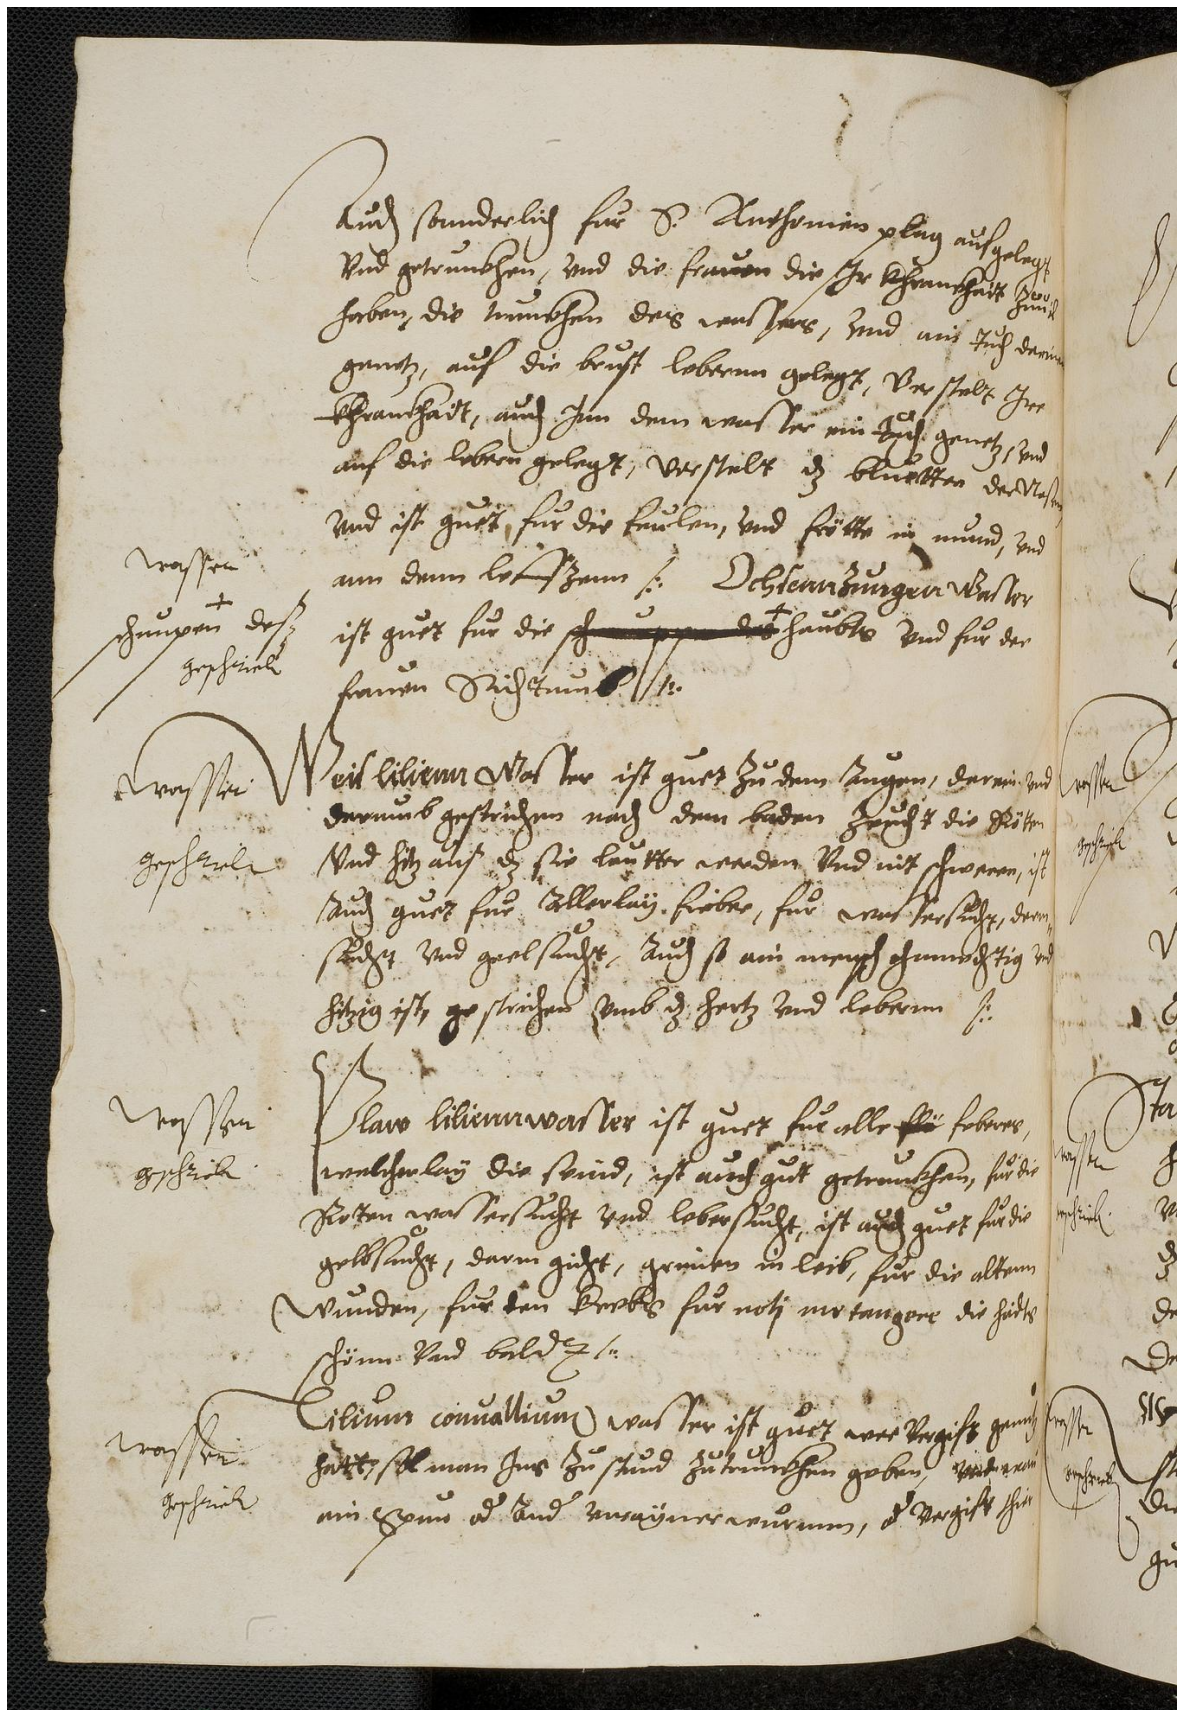 Auch sonnderlich fur S. Anthonien plag aufgelegt
Vnd getrunkhen, vnd die frauen die Ihr khranckhait Zuuil
haben, die trinnkhen des wassers, vnd ain tuch darin
genetz, auf die brust lebernn gelegt, Verstelt Ihre
khranckhait, auch Inn dem wasser ein tuch genetz, vnd
auf die lebern gelegt, verstelt dz bluetten der Nasen,
vnd ist guet fur die feulen, vnd frötte in mund, vnd
ann denn lefftzenn /: Ochsennzungen Wasser
ist guet fur die schuppen des haubts vnd fur der
frauen Sichtumb /:
wasser
schuupen desz
geschrieb
Weis lilienn Wasser ist guet zu dem Augen, darein vnd
darumb gestrichen nach dem baden Zeucht die Rötten
Vnd hitz aus dz sie lautter werden Vnd nit schweren, ist
Auch guet fur Allerlaÿ fieber, fur wassersucht, darm=
sucht vnd geelsucht, Auch so ain mensch ohnmechtig vnd
hitzig ist, gestrichen vmb dz hertz vnd lebernn /:
wasser
geschrieb
Blaw lilienn wasser ist guet fur alle febres,
welcherlaÿ die seind, ist auch gut getrunkhen, fur die
Roten wassersucht vnd lebersucht, ist auch guet fur die
gelbsucht, darm gicht, grimen in leib, fur die altenn
Wunden, fur den Krebs fur noli me tangere die hailts
schönn Vnd bald /:
wasser
geschrieb
Lilium conuallium wasser ist guet wer Vergift genutz
hatt, sol man Ims zu stund zu trinnkhen geben,
ain Spin od And vnrayner wurmm, od Vergift thier
wasser
geschrieb